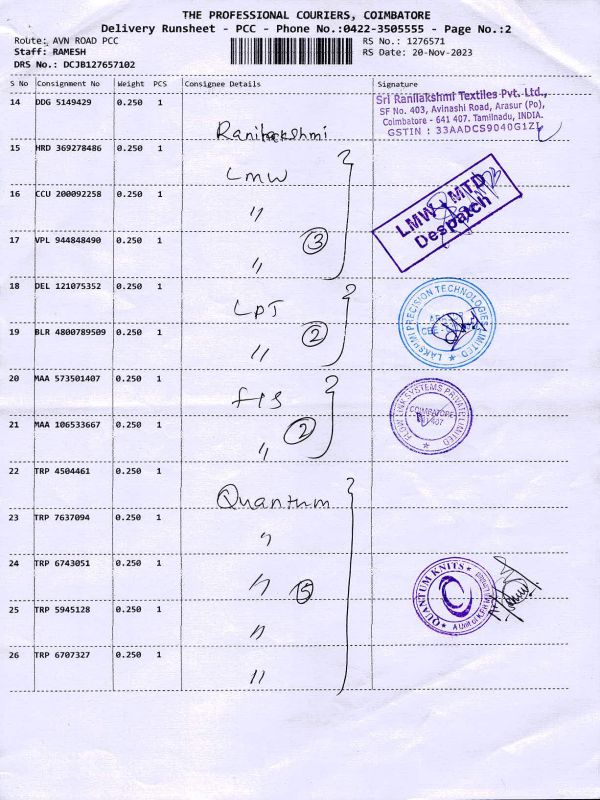 THE PROFESSIONAL COURIERS, COIMBATORE
Delivery Runsheet - PCC - Phone No.:0422-3505555 - Page No.:2
Route: AVN ROAD PCC
RS No.: 1276571
Staff: RAMESH
RS Date: 20-Nov-2023
DRS No.: DCJB127657102
S No Consignment No Weight PCS Consignee Details Signature
14 DDG 5149429 0.250 1
Sri Ranilakshmi Textiles Pvt. Ltd.,
SF No. 403, Avinashi Road, Arasur (Po),
Coimbatore - 641 407. Tamilnadu, INDIA.
GSTIN : 33AADCS9040G1ZL
Ranilakshmi
15 HRD 369278486 0.250 1
LMW
16 CCU 200092258 0.250 1
"
LMW - MTD
Despatch
17 VPL 944848490 0.250 1
3
"
18 DEL 121075352 0.250 1
LPT
LAKSHMI PRECISION TECHNOLOGIES LIMITED
19 BLR 4800789509 0.250 1
2
"
20 MAA 573501407 0.250 1
FLS
FLOW LINK SYSTEMS PRIVATE LIMITED
COIMBATORE
641 407
21 MAA 106533667 0.250 1
2
"
22 TRP 4504461 0.250 1
Quantum
23 TRP 7637094 0.250 1
"
24 TRP 6743051 0.250 1
" 5
QUANTUM KNITS
25 TRP 5945128 0.250 1
"
26 TRP 6707327 0.250 1
"